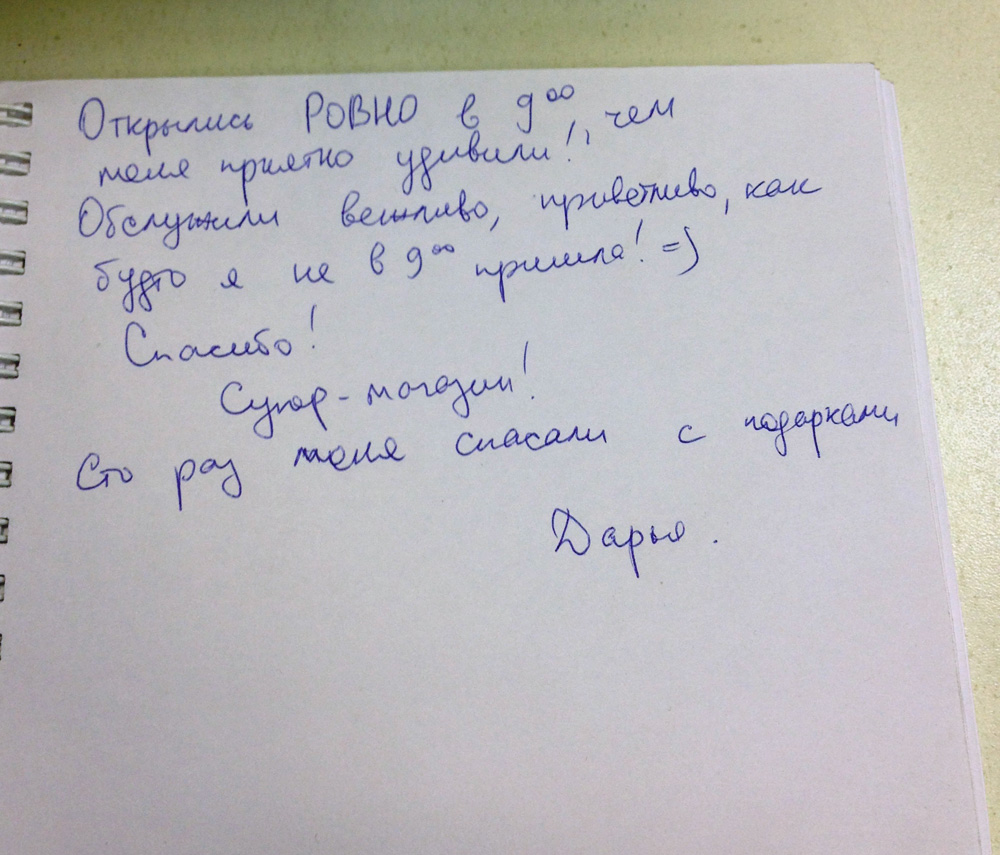 Открылись РОВНО в 9⁰⁰
меня приятно удивили!!, чем
Обслужили вежливо, приветливо, как
будто я не в 9⁰⁰ пришла! =)
Спасибо!
Супер-магазин!
Сто раз меня спасали с подарками
Дарья.